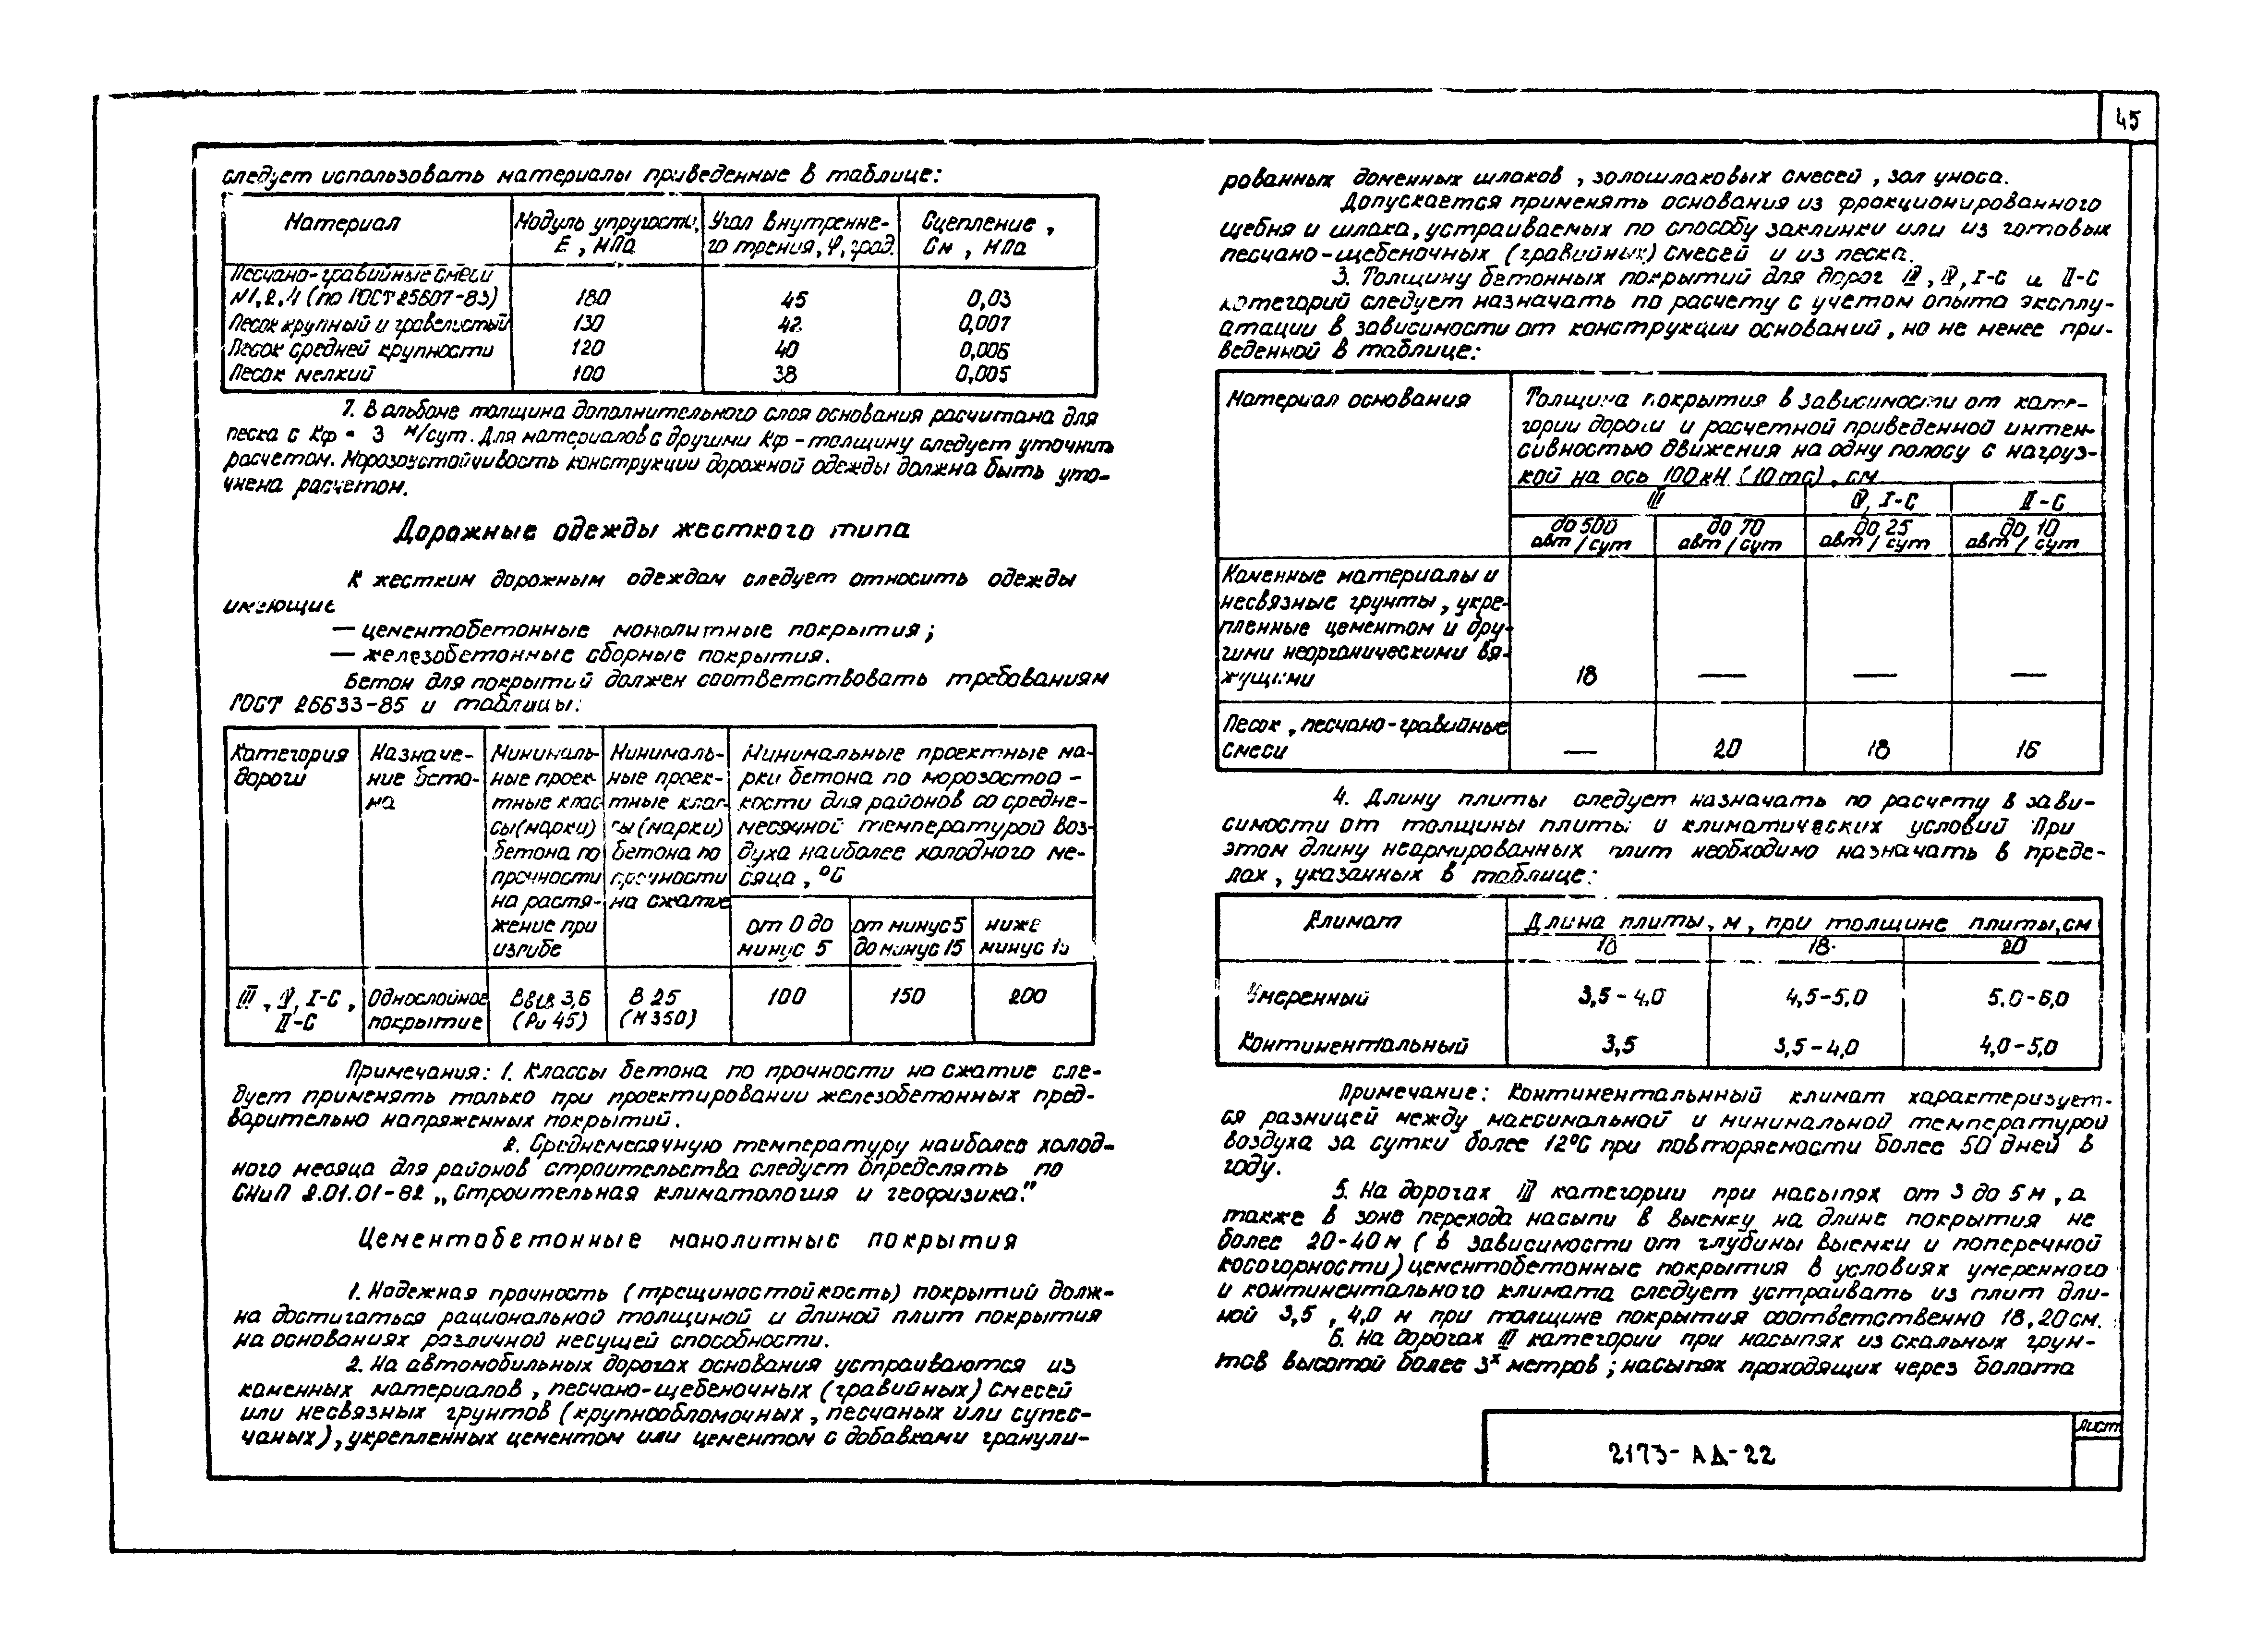 45
следует использовать материалы приведенные в таблице:
Материал
Модуль упругости, E, МПа
Угол внутренне-
го трения, φ, град.
Сцепление,
См, МПа
Песчано-гравийные смеси
N1,2,4 (по ГОСТ 25607-83) 180 45 0,03
Песок крупный и гравелистый 130 42 0,007
Песок средней крупности 120 40 0,006
Песок мелкий 100 38 0,005
7. В альбоме толщина дополнительного слоя основания расчитана для
песка с Кф = 3 м/сут. Для материалов с другими Кф - толщину следует уточнить
расчетом. Морозоустойчивость конструкции дорожной одежды должна быть уто-
чнена расчетом.
Дорожные одежды жесткого типа
К жестким дорожным одеждам следует относить одежды
имеющие
— цементобетонные монолитные покрытия;
— железобетонные сборные покрытия.
Бетон для покрытий должен соответствовать требованиям
ГОСТ 26633-85 и таблицы:
Категория
дороги
Назначе-
ние бето-
на
Минималь-
ные проек-
тные клас
сы(марки)
бетона по
прочности
на растя-
жение при
изгибе
Минималь-
ные проек-
тные клас-
сы (марки)
бетона по
прочности
на сжатие
Минимальные проектные ма-
рки бетона по морозостой-
кости для районов со средне-
месячной температурой воз-
духа наиболее холодного ме-
сяца, °С
от 0 до
минус 5
от минус 5
до минус 15
ниже
минус 15
III, IV, I-С,
II-С
Однослойное
покрытие
Вbtb 3,6
(Ри 45)
В 25
(М350)
100
150
200
Примечания: 1. Классы бетона по прочности на сжатие сле-
дует применять только при проектировании железобетонных пред-
варительно напряженных покрытий.
2. Среднемесячную температуру наиболее холод-
ного месяца для районов строительства следует определять по
СНиП 2.01.01-82 „Строительная климатология и геофизика."
Цементобетонные монолитные покрытия
1. Надежная прочность (трещиностойкость) покрытий долж-
на достигаться рациональной толщиной и длиной плит покрытия
на основаниях различной несущей способности.
2. На автомобильных дорогах основания устраиваются из
каменных материалов, песчано-щебеночных (гравийных) смесей
или несвязных грунтов (крупнообломочных, песчаных или супес-
чаных), укрепленных цементом или цементом с добавками гранули-
рованных доменных шлаков, золошлаковых смесей, зол уноса.
Допускается применять основания из фракционированного
щебня и шлака, устраиваемых по способу заклинки или из готовых
песчано-щебеночных (гравийных) смесей и из песка.
3. Толщину бетонных покрытий для дорог III, IV, I-С и II-С
категорий следует назначать по расчету с учетом опыта эксплу-
атации в зависимости от конструкции оснований, но не менее при-
веденной в таблице:
Материал основания
Толщина покрытия в зависимости от кате-
гории дороги и расчетной приведенной интен-
сивностью движения на одну полосу с нагруз-
кой на ось 100 кН (10 тс), см
III IV, I-С II-С
до 500
авт/сут
до 70
авт/сут
до 25
авт/сут
до 10
авт/сут
Каменные материалы и
несвязные грунты, укре-
пленные цементом и дру-
гими неорганическими вя-
жущими 18 — — —
Песок, песчано-гравийные
смеси — 20 18 16
4. Длину плиты следует назначать по расчету в зави-
симости от толщины плиты и климатических условий При
этом длину неармированных плит необходимо назначать в преде-
лах, указанных в таблице:
Климат
Длина плиты, м, при толщине плиты, см
16 18 20
Умеренный 3,5-4,0 4,5-5,0 5,0-6,0
Континентальный 3,5 3,5-4,0 4,0-5,0
Примечание: Континентальнный климат характеризует-
ся разницей между максимальной и минимальной температурой
воздуха за сутки более 12°С при повторяемости более 50 дней в
году.
5. На дорогах III категории при насыпях от 3 до 5м, а
также в зоне перехода насыпи в выемку на длине покрытия не
более 20-40м (в зависимости от глубины выемки и поперечной
косогорности) цементобетонные покрытия в условиях умеренного
и континентального климата следует устраивать из плит дли-
ной 3,5, 4,0 м при толщине покрытия соответственно 18, 20см.
6. На дорогах III категории при насыпях из скальных грун-
тов высотой более 3х метров; насыпях проходящих через болота
2173-АД-22
Лист